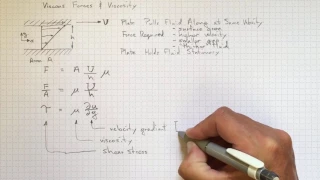 Viscous Forces & Viscosity
Plate Pulls Fluid Along at Same Velocity
U
h
Force Required
- surface area
- higher velocity
- smaller
- thicker fluid
Plate Holds Fluid Stationary
Area A
F = A U/h μ
F/A = μ U/h
τ = μ ∂u/∂y
velocity gradient [
viscosity
shear stress